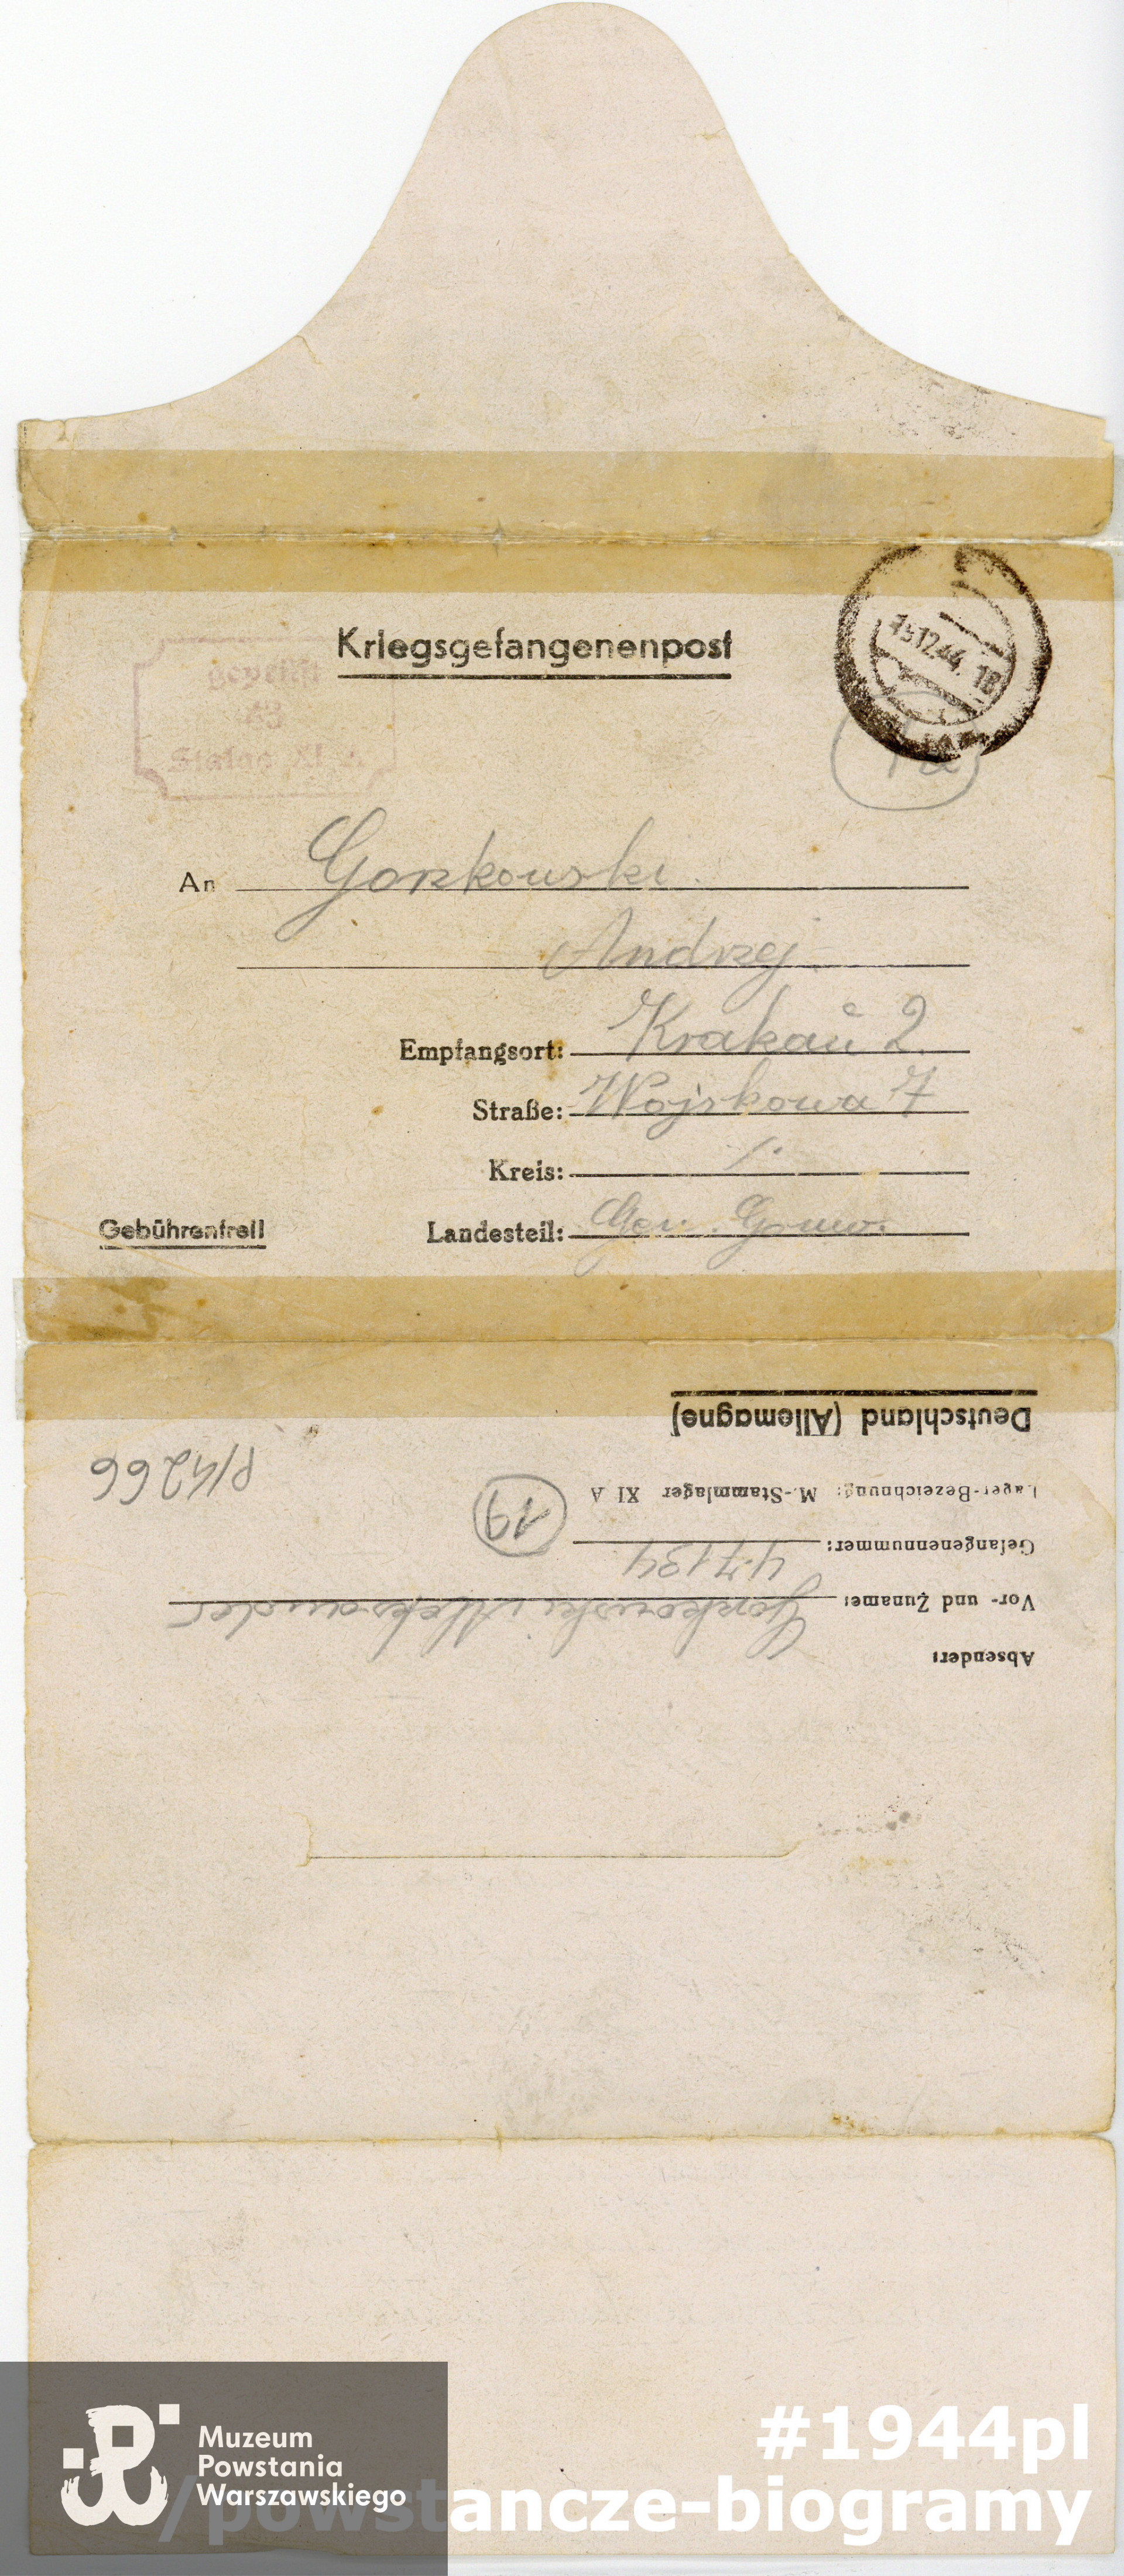 Kriegsgefangenenpost
geprüft
Stalag XI A
15.12.44. 18
An Gorzkowski
Andrzej
Empfangsort: Krakau 2.
Straße: Wojskowa 7
Kreis: /.
Gebührenfrei!
Landesteil: Gen. Gouv.
Absender:
Vor- und Zuname: Gorzkowski Aleksander
Gefangenennummer: 47134
19
Lager-Bezeichnung: M.-Stammlager XI A
P/4266
Deutschland (Allemagne)
Muzeum
Powstania
Warszawskiego
#1944pl
/powstancze-biogramy